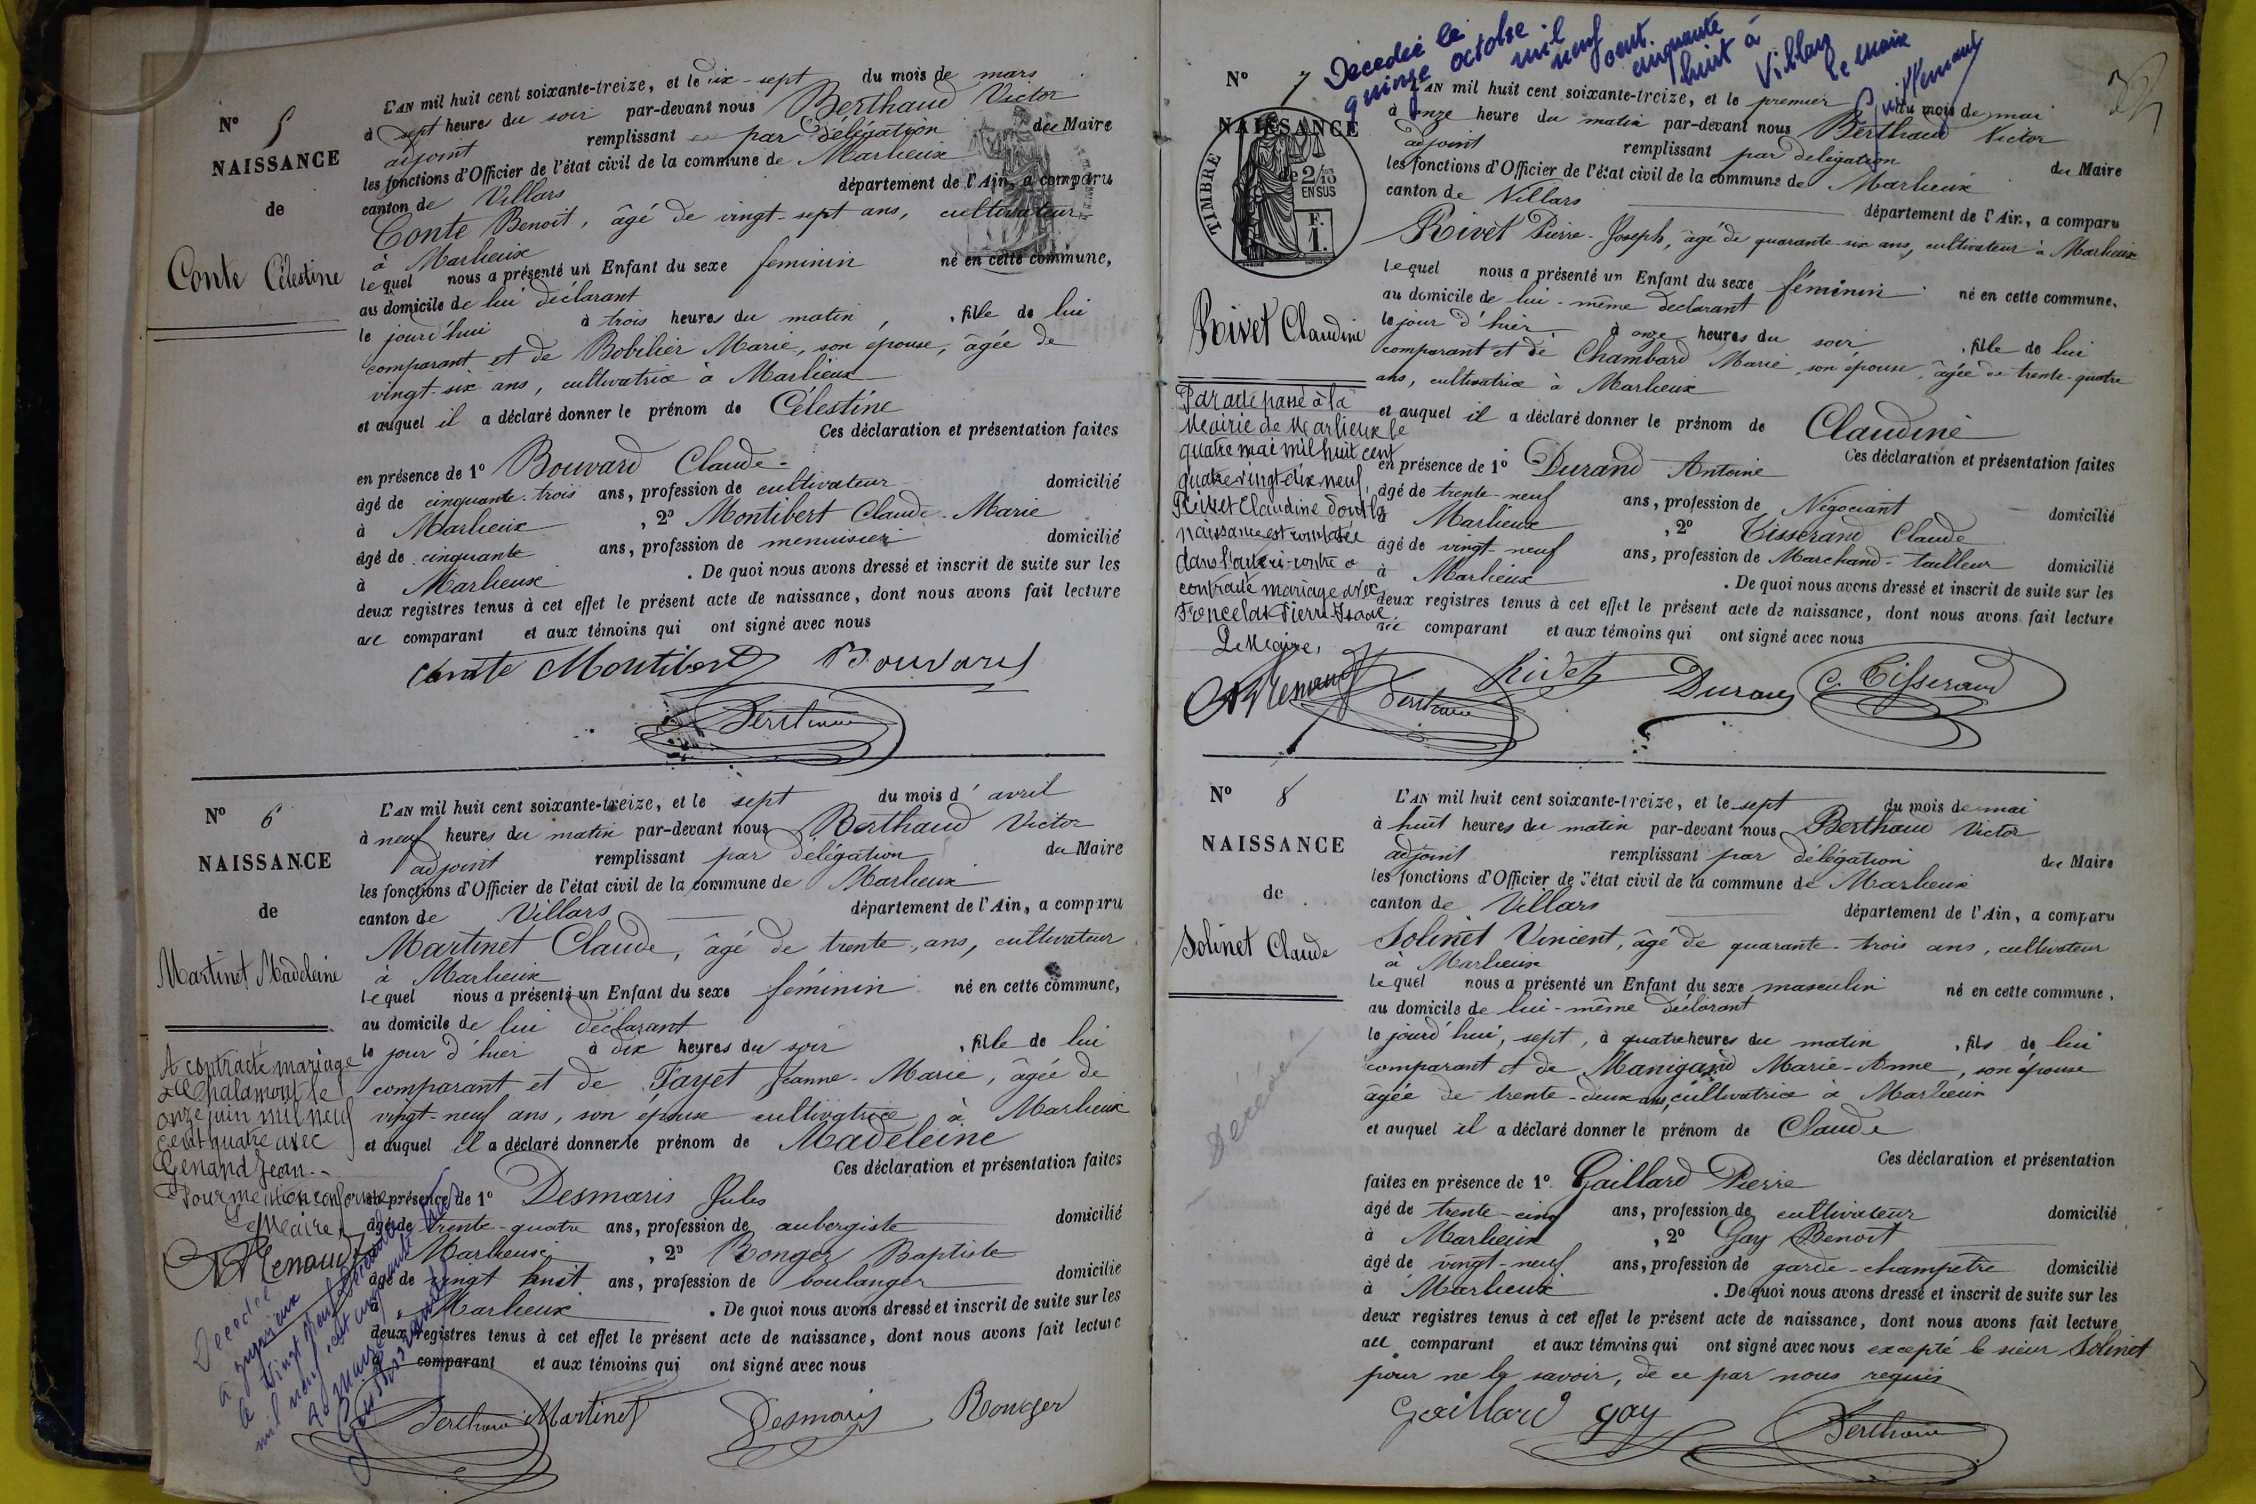 N° 5
NAISSANCE
de
Conte Célestine
L'AN mil huit cent soixante-treize, et le dix-sept du mois de mars
à sept heures du soir par-devant nous Berthaud Victor
adjoint remplissant par délégation du Maire
les fonctions d'Officier de l'état civil de la commune de Marlieux
canton de Villars département de l'Ain, a comparu
Conte Benoit, âgé de vingt-sept ans, cultivateur
à Marlieux
lequel nous a présenté un Enfant du sexe féminin né en cette commune,
au domicile de lui déclarant
le jourd'hui à trois heures du matin, fille de lui
comparant et de Bobilier Marie, son épouse, âgée de
vingt-six ans, cultivatrice à Marlieux
et auquel il a déclaré donner le prénom de Célestine
Ces déclaration et présentation faites
en présence de 1° Bouvard Claude
âgé de cinquante-trois ans, profession de cultivateur domicilié
à Marlieux, 2° Montibert Claude-Marie
âgé de cinquante ans, profession de menuisier domicilié
à Marlieux. De quoi nous avons dressé et inscrit de suite sur les
deux registres tenus à cet effet le présent acte de naissance, dont nous avons fait lecture
au comparant et aux témoins qui ont signé avec nous
Conte Montibert Bouvard
Berthaud
N° 6
NAISSANCE
de
Martinet Madeleine
A contracté mariage
à Chalamont le
onze juin mil neuf
cent quatre avec
Genand Jean.
Pour mention conforme
Le Maire,
L'AN mil huit cent soixante-treize, et le sept du mois d'avril
à neuf heures du matin par-devant nous Berthaud Victor
adjoint remplissant par délégation du Maire
les fonctions d'Officier de l'état civil de la commune de Marlieux
canton de Villars département de l'Ain, a comparu
Martinet Claude, âgé de trente ans, cultivateur
à Marlieux
lequel nous a présenté un Enfant du sexe féminin né en cette commune,
au domicile de lui déclarant
le jour d'hier à dix heures du soir, fille de lui
comparant et de Fayet Jeanne-Marie, âgée de
vingt-neuf ans, son épouse cultivatrice à Marlieux
et auquel il a déclaré donner le prénom de Madeleine
Ces déclaration et présentation faites
en présence de 1° Desmaris Jules
âgé de trente-quatre ans, profession de aubergiste domicilié
Marlieux, 2° Ronger Baptiste
âgé de vingt huit ans, profession de boulanger domicilié
à Marlieux. De quoi nous avons dressé et inscrit de suite sur les
deux registres tenus à cet effet le présent acte de naissance, dont nous avons fait lecture
comparant et aux témoins qui ont signé avec nous
Berthaud Martinet Desmaris Ronger
Décédée
mil neuf cent cinquante
Le Maire,
Décédée le
quinze octobre mil
neuf cent
cinquante
huit à
Villars
Le Maire
Guillemaut
32
N° 7
NAISSANCE
TIMBRE
de 2/10
EN SUS
F.
1.
Rivet Claudine
Par acte passé à la
Mairie de Marlieux le
quatre mai mil huit cent
quatre vingt dix neuf,
Rivet Claudine dont la
naissance est constatée
dans l'acte ci-contre a
contracté mariage avec
Poncelat Pierre-Isaac
Le Maire,
L'AN mil huit cent soixante-treize, et le premier du mois de mai
à onze heure du matin par-devant nous Berthaud Victor
adjoint remplissant par délégation du Maire
les fonctions d'Officier de l'état civil de la commune de Marlieux
canton de Villars département de l'Ain, a comparu
Rivet Pierre-Joseph, âgé de quarante-six ans, cultivateur à Marlieux
lequel nous a présenté un Enfant du sexe féminin né en cette commune,
au domicile de lui-même déclarant
le jour d'hier, à onze heures du soir, fille de lui
comparant et de Chambard Marie, son épouse, âgée de trente-quatre
ans, cultivatrice à Marlieux
et auquel il a déclaré donner le prénom de Claudine
Ces déclaration et présentation faites
en présence de 1° Durand Antoine
âgé de trente-neuf ans, profession de Négociant domicilié
à Marlieux, 2° Tisserand Claude
âgé de vingt-neuf ans, profession de Marchand-tailleur domicilié
à Marlieux. De quoi nous avons dressé et inscrit de suite sur les
deux registres tenus à cet effet le présent acte de naissance, dont nous avons fait lecture
au comparant et aux témoins qui ont signé avec nous
Berthaud Rivet Durand C. Tisserand
N° 8
NAISSANCE
de
Solinet Claude
Décédé
L'AN mil huit cent soixante-treize, et le sept du mois de mai
à huit heures du matin par-devant nous Berthaud Victor
adjoint remplissant par délégation du Maire
les fonctions d'Officier de l'état civil de la commune de Marlieux
canton de Villars département de l'Ain, a comparu
Solinet Vincent, âgé de quarante-trois ans, cultivateur
à Marlieux
lequel nous a présenté un Enfant du sexe masculin né en cette commune,
au domicile de lui-même déclarant
le jourd'hui, sept, à quatre heures du matin, fils de lui
comparant et de Manigand Marie-Anne, son épouse
âgée de trente-deux ans, cultivatrice à Marlieux
et auquel il a déclaré donner le prénom de Claude
Ces déclaration et présentation
faites en présence de 1° Gaillard Pierre
âgé de trente-cinq ans, profession de cultivateur domicilié
à Marlieux, 2° Gay Benoit
âgé de vingt-neuf ans, profession de garde-champêtre domicilié
à Marlieux. De quoi nous avons dressé et inscrit de suite sur les
deux registres tenus à cet effet le présent acte de naissance, dont nous avons fait lecture
au comparant et aux témoins qui ont signé avec nous excepté le sieur Solinet
pour ne le savoir, de ce par nous requis
Gaillard Gay Berthaud